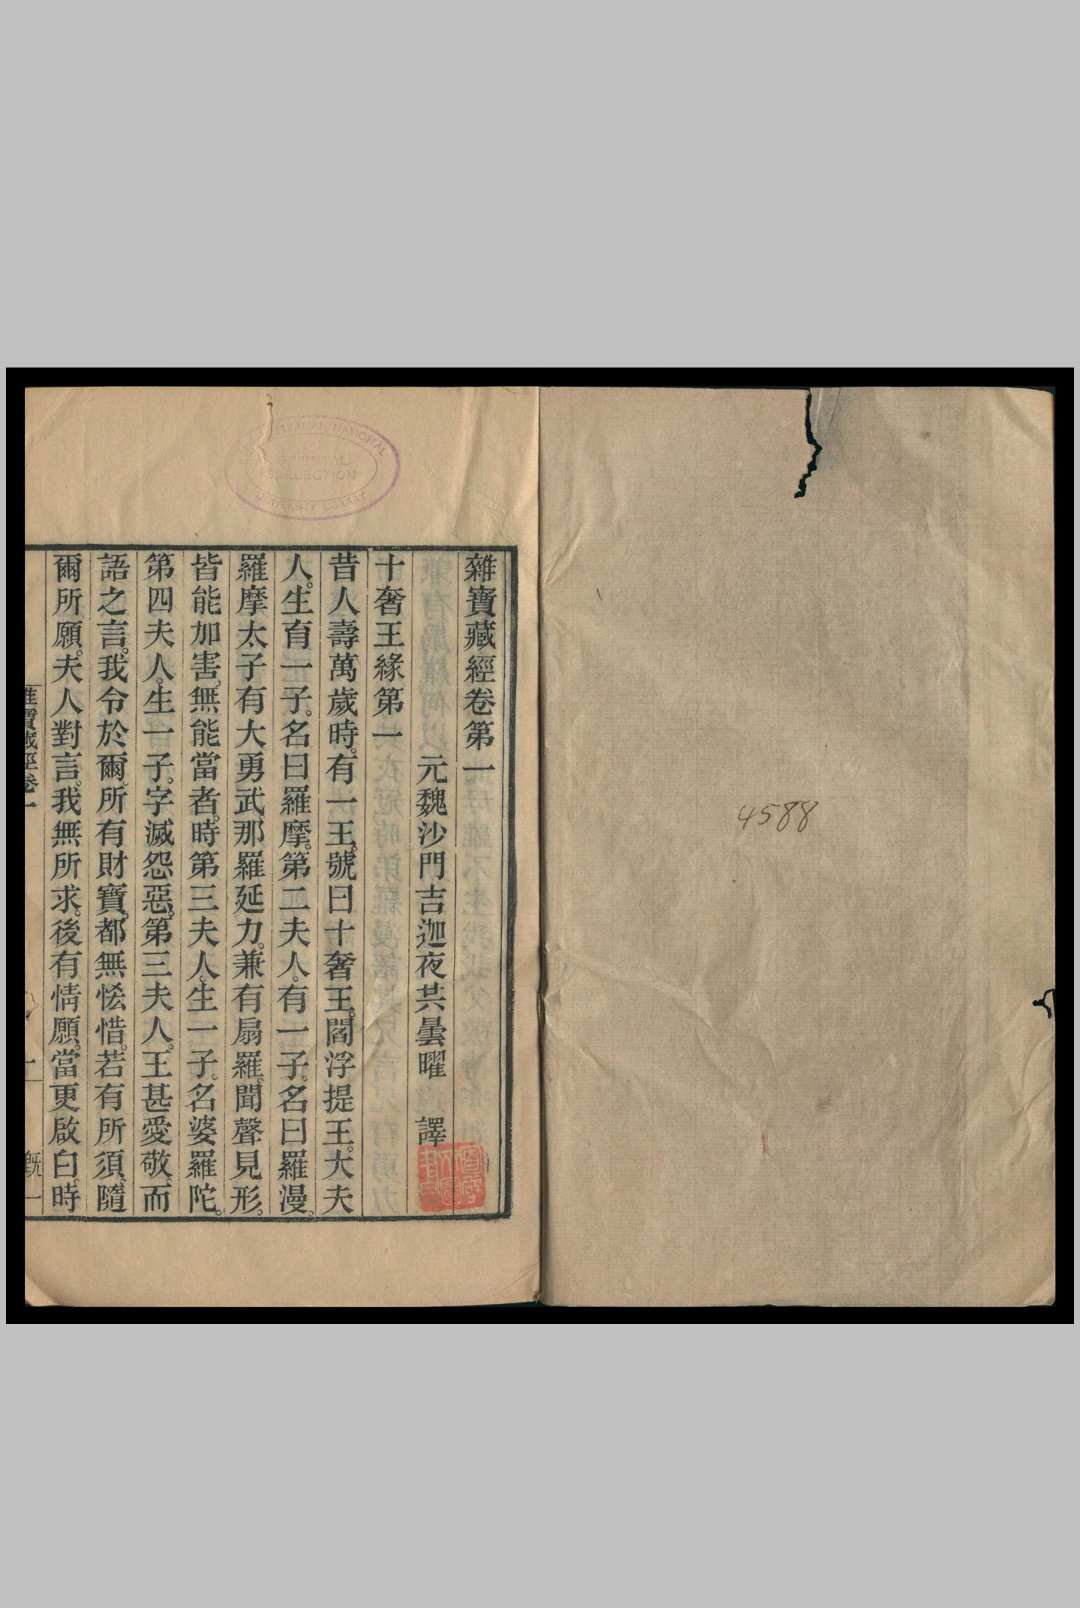 4588
雜寶藏經卷第一
元魏沙門吉迦夜共曇曜 譯
十奢王緣第一
昔人壽萬歲時。有一王。號曰十奢王。閻浮提王。大夫
人。生育一子。名曰羅摩。第二夫人。有一子。名曰羅漫。
羅摩太子有大勇武。那羅延力。兼有扇羅。聞聲見形。
皆能加害。無能當者。時第三夫人。生一子。名婆羅陀。
第四夫人。生一子。字滅怨惡。第三夫人。王甚愛敬。而
語之言。我今於爾。所有財寶。都無悋惜。若有所須。隨
爾所願。夫人對言。我無所求。後有情願。當更啟白。時
雜寶藏經卷一
一
NATIONAL
COLLECTION